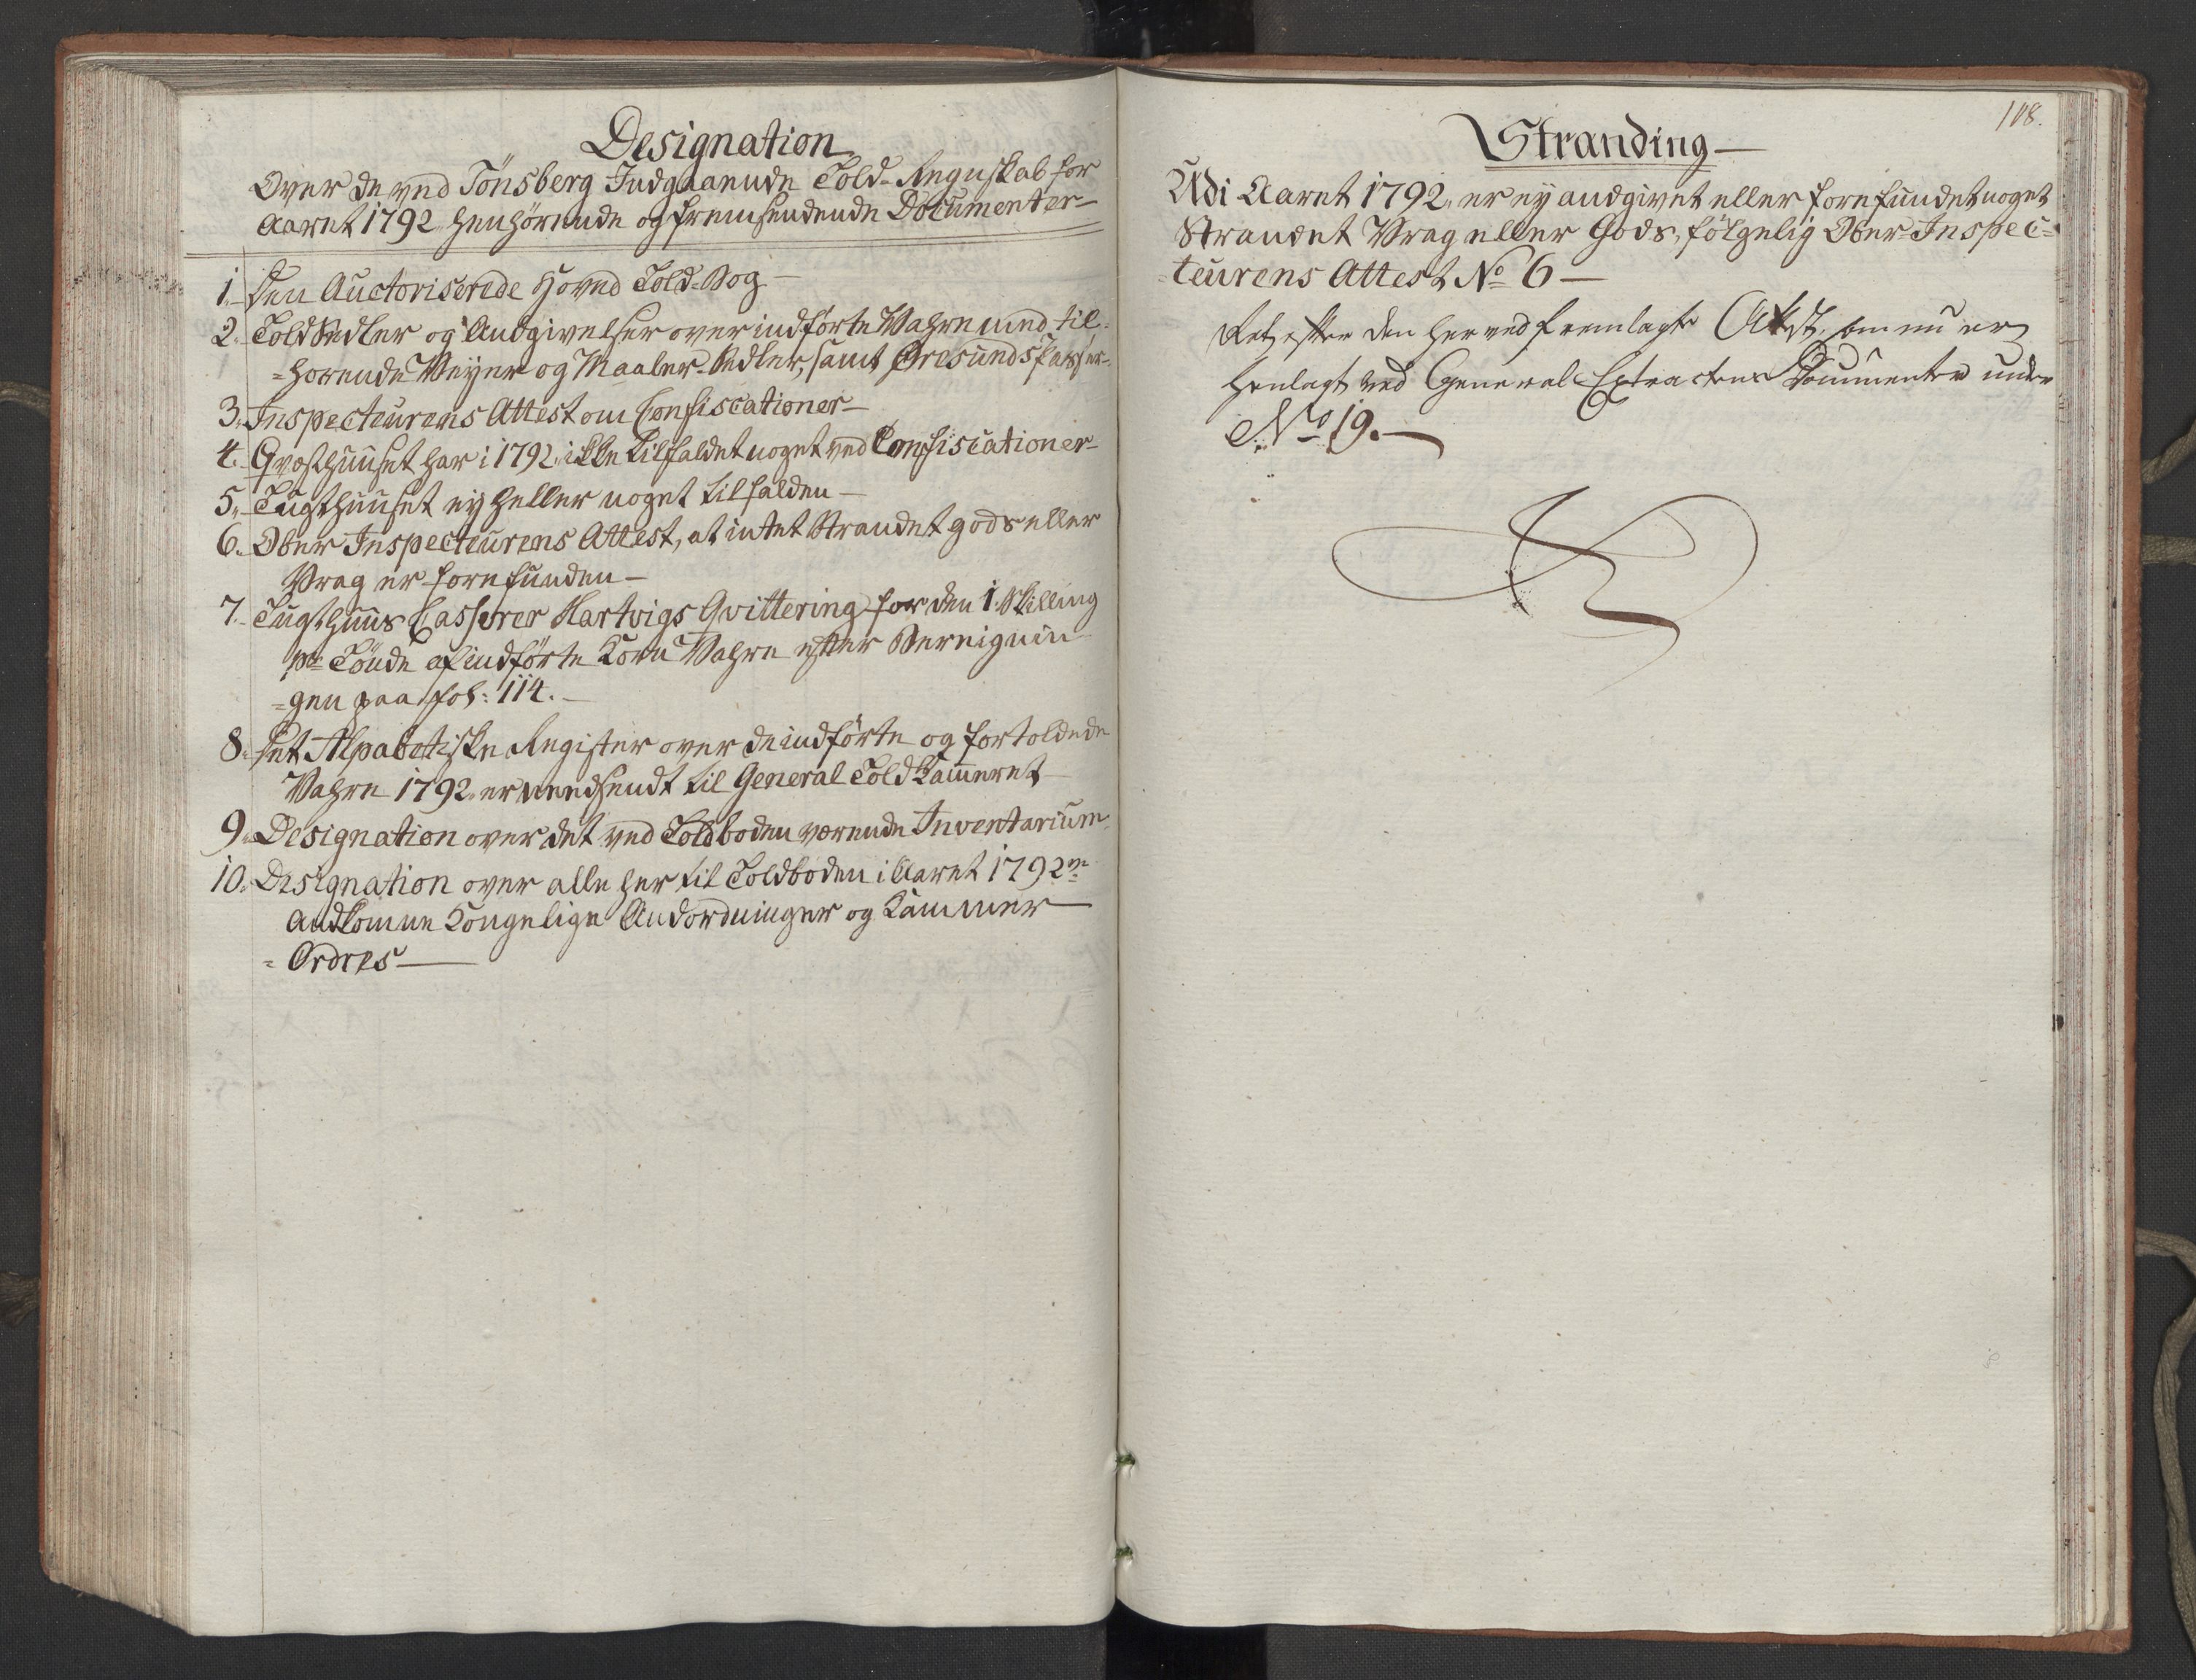 Designation
Over de ved Tönsberg Indgaaende Told-Regnskab for
Aaret 1792 henhörende og fremsendende Documenter-
1. Den Auctoriserede Hoved Told-Bog-
2. Told Sedler og Andgivelser over indførte Vahre med til-
=horende Veyer og Maaler-Sedler, samt Øresunds Passer-
3. Inspecteurens Attest om Confiscationer-
4. Qvæsthuuset har i 1792 ikke tilfaldet noget ved Confiscationer-
5. Tugthuuset ey heller noget tilfalden-
6. Ober Inspecteurens Attest, at intet Strandet gods eller
Vrag er forefunden-
7. Tugthuus Casserer Hartvigs Qvittering for den 1 Skilling
pr Tönde af indförte Korn Vahre efter Beregnin
=gen paa fol: 114.-
8. Det Alpabetiske Register over de indförte og fortoldede
Vahre 1792 er needsendt til General Toldkammeret
9. Designation over det ved Toldboden værende Inventarium
10. Designation over alle her til Toldboden i Aaret 1792
Andkomne Kongelige Andordninger og Kammer
=Ordres-
108.
Stranding-
Udi Aaret 1792 er ey andgivet eller forefundet noget
Strandet Vrag eller Gods, fölgelig Ober-Inspec=
=teurens Attest No 6-
efter den herved fremlagte Attest, som nu er
henlagt ved General Extractens Documenter under
No 19.-